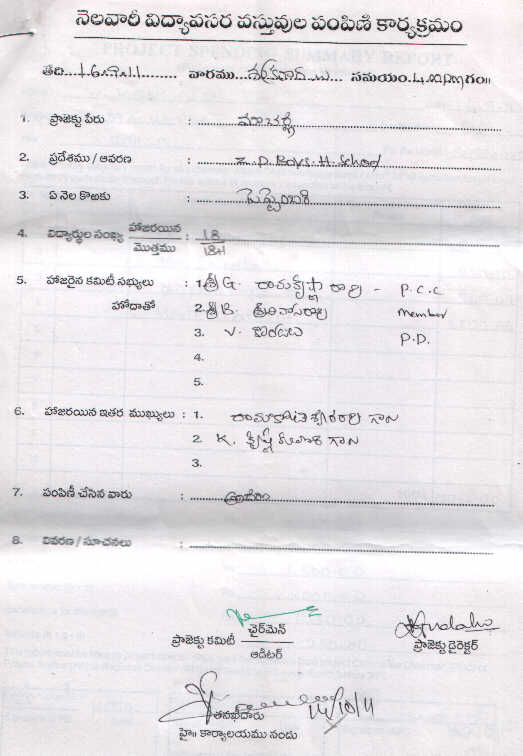 నెలవారీ విద్యావసర వస్తువుల పంపిణి కార్యక్రమం
తేది...16.9.11......... వారము...శుక్రవారం... సమయం.4.00pmగం॥
1. ప్రాజెక్టు పేరు : మాచర్ల
2. ప్రదేశము / ఆవరణ : Z.P. Boys. H. School
3. ఏ నెల కొఱకు : సెప్టెంబర్
4. విద్యార్థుల సంఖ్య హాజరయిన : 18
మొత్తము
5. హాజరైన కమిటీ సభ్యులు : 1. శ్రీ G. రామకృష్ణా రావు - P.C.C
హోదాతో 2. శ్రీ B. శ్రీనివాసరావు member
3. V. P.D.
4.
5.
6. హాజరయిన ఇతర ముఖ్యులు : 1. గారు
2 K. గారు
3.
7. పంపిణీ చేసిన వారు :
8. వివరణ / సూచనలు :
ప్రాజెక్టు కమిటీ ఛైర్‌మెన్
ఆడిటర్
ప్రాజెక్టు డైరెక్టర్
14/10/11
తనఖీదారు
హై॥ కార్యాలయము నందు